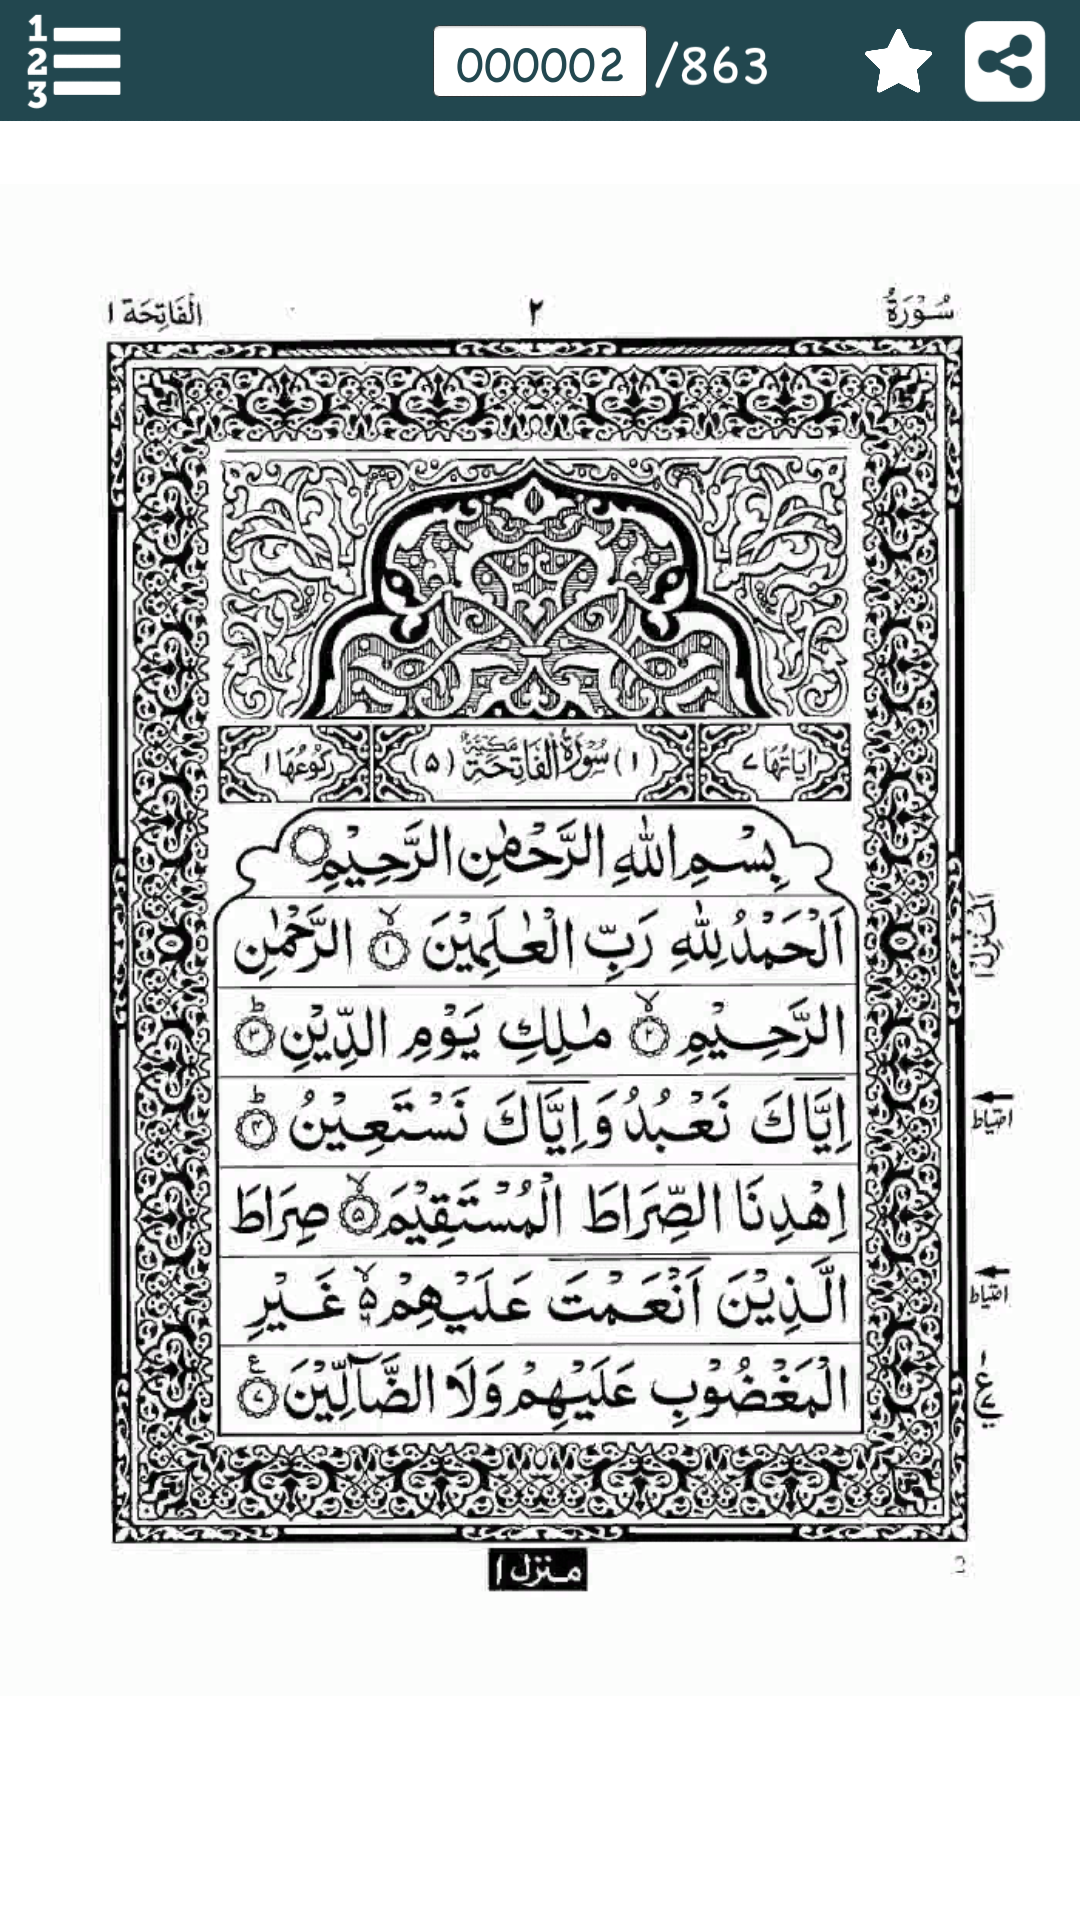 1
2
3
000002 /863
سُوۡرَةُ ٢ الۡفَاتِحَة ١
اٰيَاتُهَا ٧ (١) سُوۡرَةُ الۡفَاتِحَةِ مَكِّيَّةٌ (٥) رُكُوۡعُهَا ١
بِسۡمِ اللّٰهِ الرَّحۡمٰنِ الرَّحِيۡمِ
اَلۡحَمۡدُ لِلّٰهِ رَبِّ الۡعٰلَمِيۡنَ ۙ‏ ١ الرَّحۡمٰنِ
الۡمَنۡزِلُ ١
الرَّحِيۡمِ ۙ‏ ٢ مٰلِكِ يَوۡمِ الدِّيۡنِ ؕ‏ ٣
اِيَّاكَ نَعۡبُدُ وَاِيَّاكَ نَسۡتَعِيۡنُ ؕ‏ ٤
احتیاط
اِهۡدِنَا الصِّرَاطَ الۡمُسۡتَقِيۡمَ ۙ‏ ٥ صِرَاطَ
الَّذِيۡنَ اَنۡعَمۡتَ عَلَيۡهِمۡ ۙ ۵ غَيۡرِ
احتیاط
الۡمَغۡضُوۡبِ عَلَيۡهِمۡ وَلَا الضَّآلِّيۡنَ ٧ ع
١ ع ٧
منزل ١
2